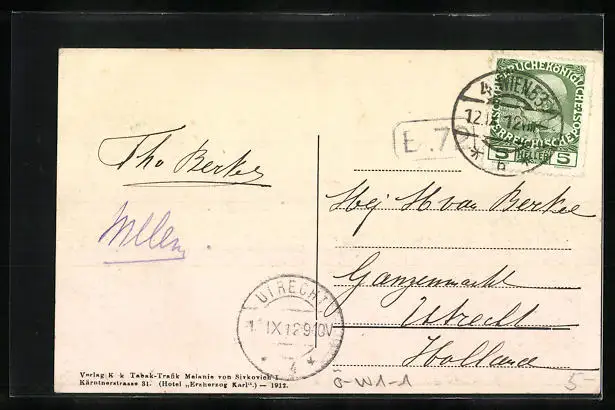 KAISERLICHE KÖNIGLICHE
ÖSTERREICHISCHE
5 HELLER 5
4 WIEN 53
12.IX.12
* b *
E..7
Tho Berkel
H van Berkel
Ganzenmarkt
Utrecht
Holland
UTRECHT
IX 12 9-10V
* 4 *
Verlag K k Tabak-Trafik Melanie von Sivkovich I.
Kärntnerstrasse 31. (Hotel „Erzherzog Karl“.) — 1912.
Ö-W1-1
5-